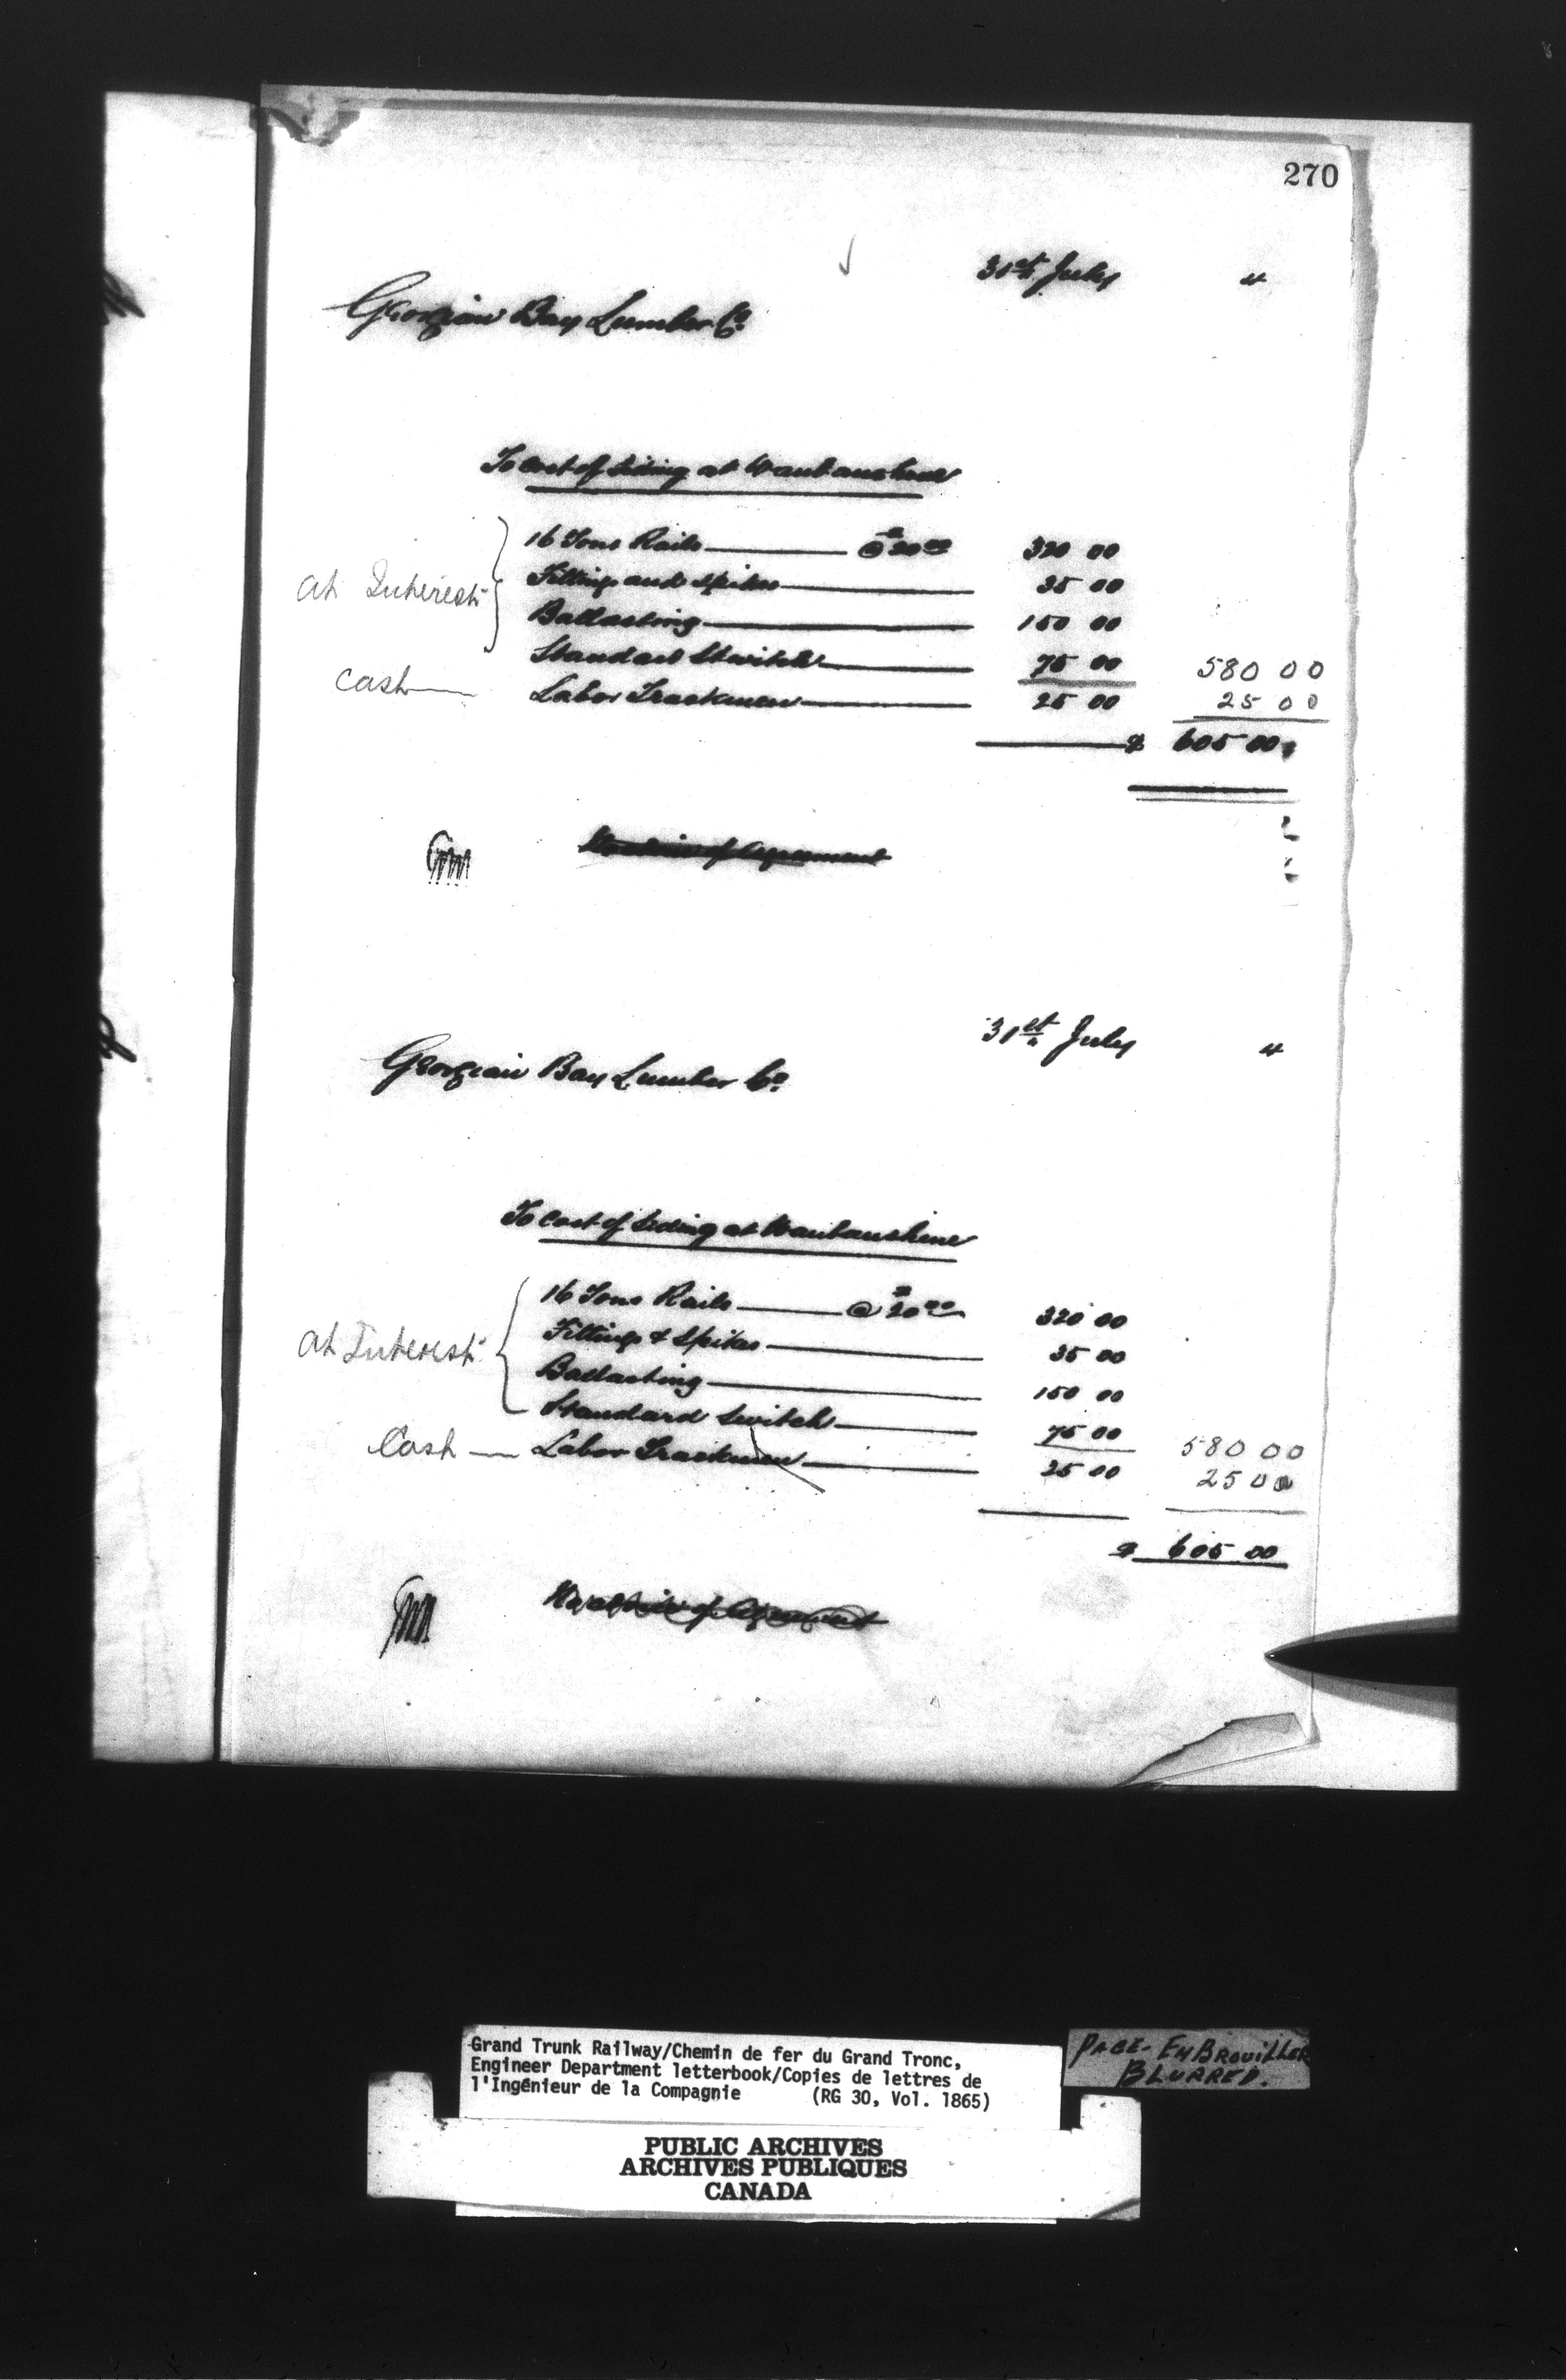 270
31st July 4
Georgian Bay Lumber Co.
To Cost of Siding at Waubaushene
16 Tons Rails @ $20.00 320 00
Fittings and Spikes 35 00
at Interest
Ballasting 150 00
Standard Switch 75 00 580 00
Cash Labor Trackmen 25 00 25 00
$ 605 00
of Agreement
31st July 4
Georgian Bay Lumber Co.
To Cost of Siding at Waubaushene
16 Tons Rails @ $20.00 320 00
Fittings & Spikes 35 00
at Interest
Ballasting 150 00
Standard Switch 75 00 580 00
Cash Labor Trackmen 25 00 25 00
$ 605 00
of Agreement
Grand Trunk Railway/Chemin de fer du Grand Tronc,
Engineer Department letterbook/Copies de lettres de
l'Ingénieur de la Compagnie (RG 30, Vol. 1865)
PAGE-EMBROUILLER
BLURRED.
PUBLIC ARCHIVES
ARCHIVES PUBLIQUES
CANADA